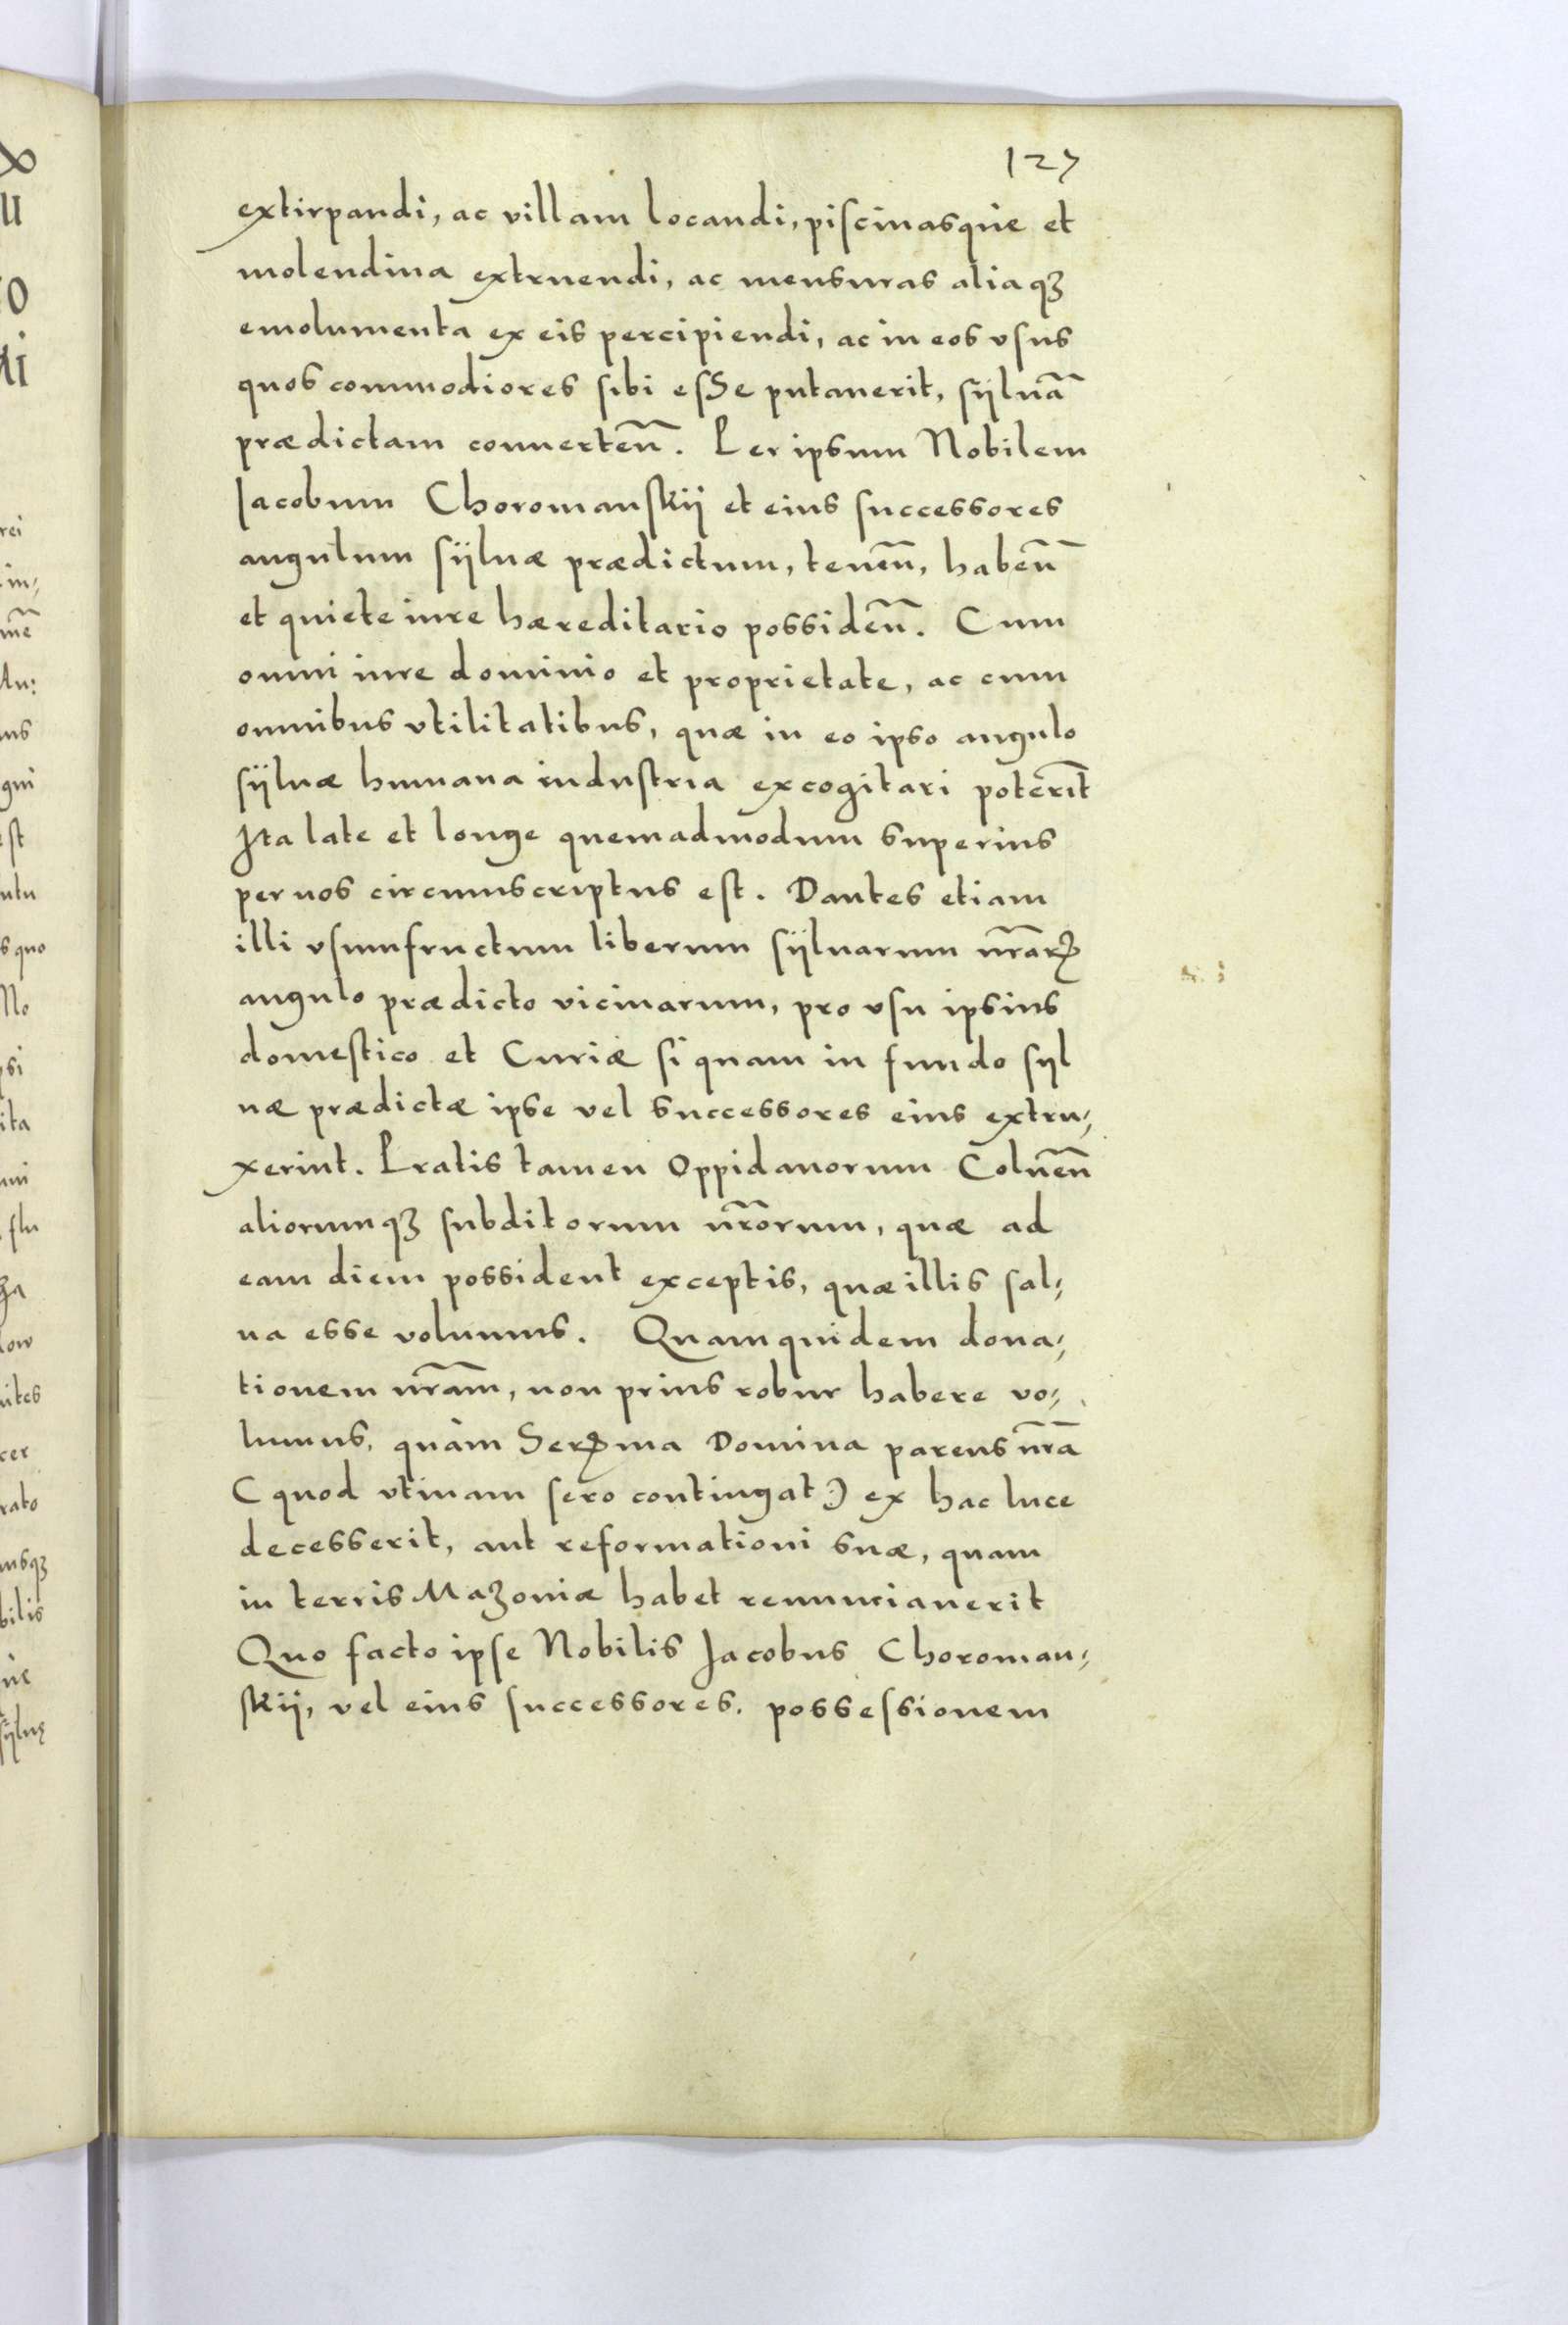 127
extirpandi, ac villam locandi, piscinasque et
molendina extruendi, ac mensuras aliaqꝫ
emolumenta ex eis percipiendi, ac in eos vsus
quos commodiores sibi esse putauerit, sÿluā
prædictam conuerteñ. Per ipsum Nobilem
Jacobum Choromanskij et eius successores
angulum sÿluæ prædictum, teneñ, habeñ
et quiete iure hæreditario possideñ. Cum
omni iure dominio et proprietate, ac cum
omnibus vtilitatibus, quæ in eo ipso angulo
sÿluæ humana industria excogitari poterit̄
Ita late et longe quemadmodum superius
per nos circumscriptus est. Dantes etiam
illi vsumfructum liberum sÿluarum nr̄arꝝ
angulo prædicto vicinarum, pro vsu ipsius
domestico et Curiæ si quam in fundo sÿl
uæ prædictæ ipse vel successores eius extru⹀
xerint. Pratis tamen Oppidanorum Colneñ
aliorumqꝫ subditorum nr̄orum, quæ ad
eam diem possident exceptis, quæ illis sal⹀
ua esse volumus. Quamquidem dona⹀
tionem nr̄am, non prius robur habere vo⹀
lumus, quàm Serꝫma Domina parens nr̄a
(quod vtinam sero contingat:) ex hac luce
decesserit, aut reformationi suæ, quam
in terris Mazoniæ habet renunciauerit
Quo facto ipse Nobilis Jacobus Choroman⹀
skij, vel eius successores, possessionem